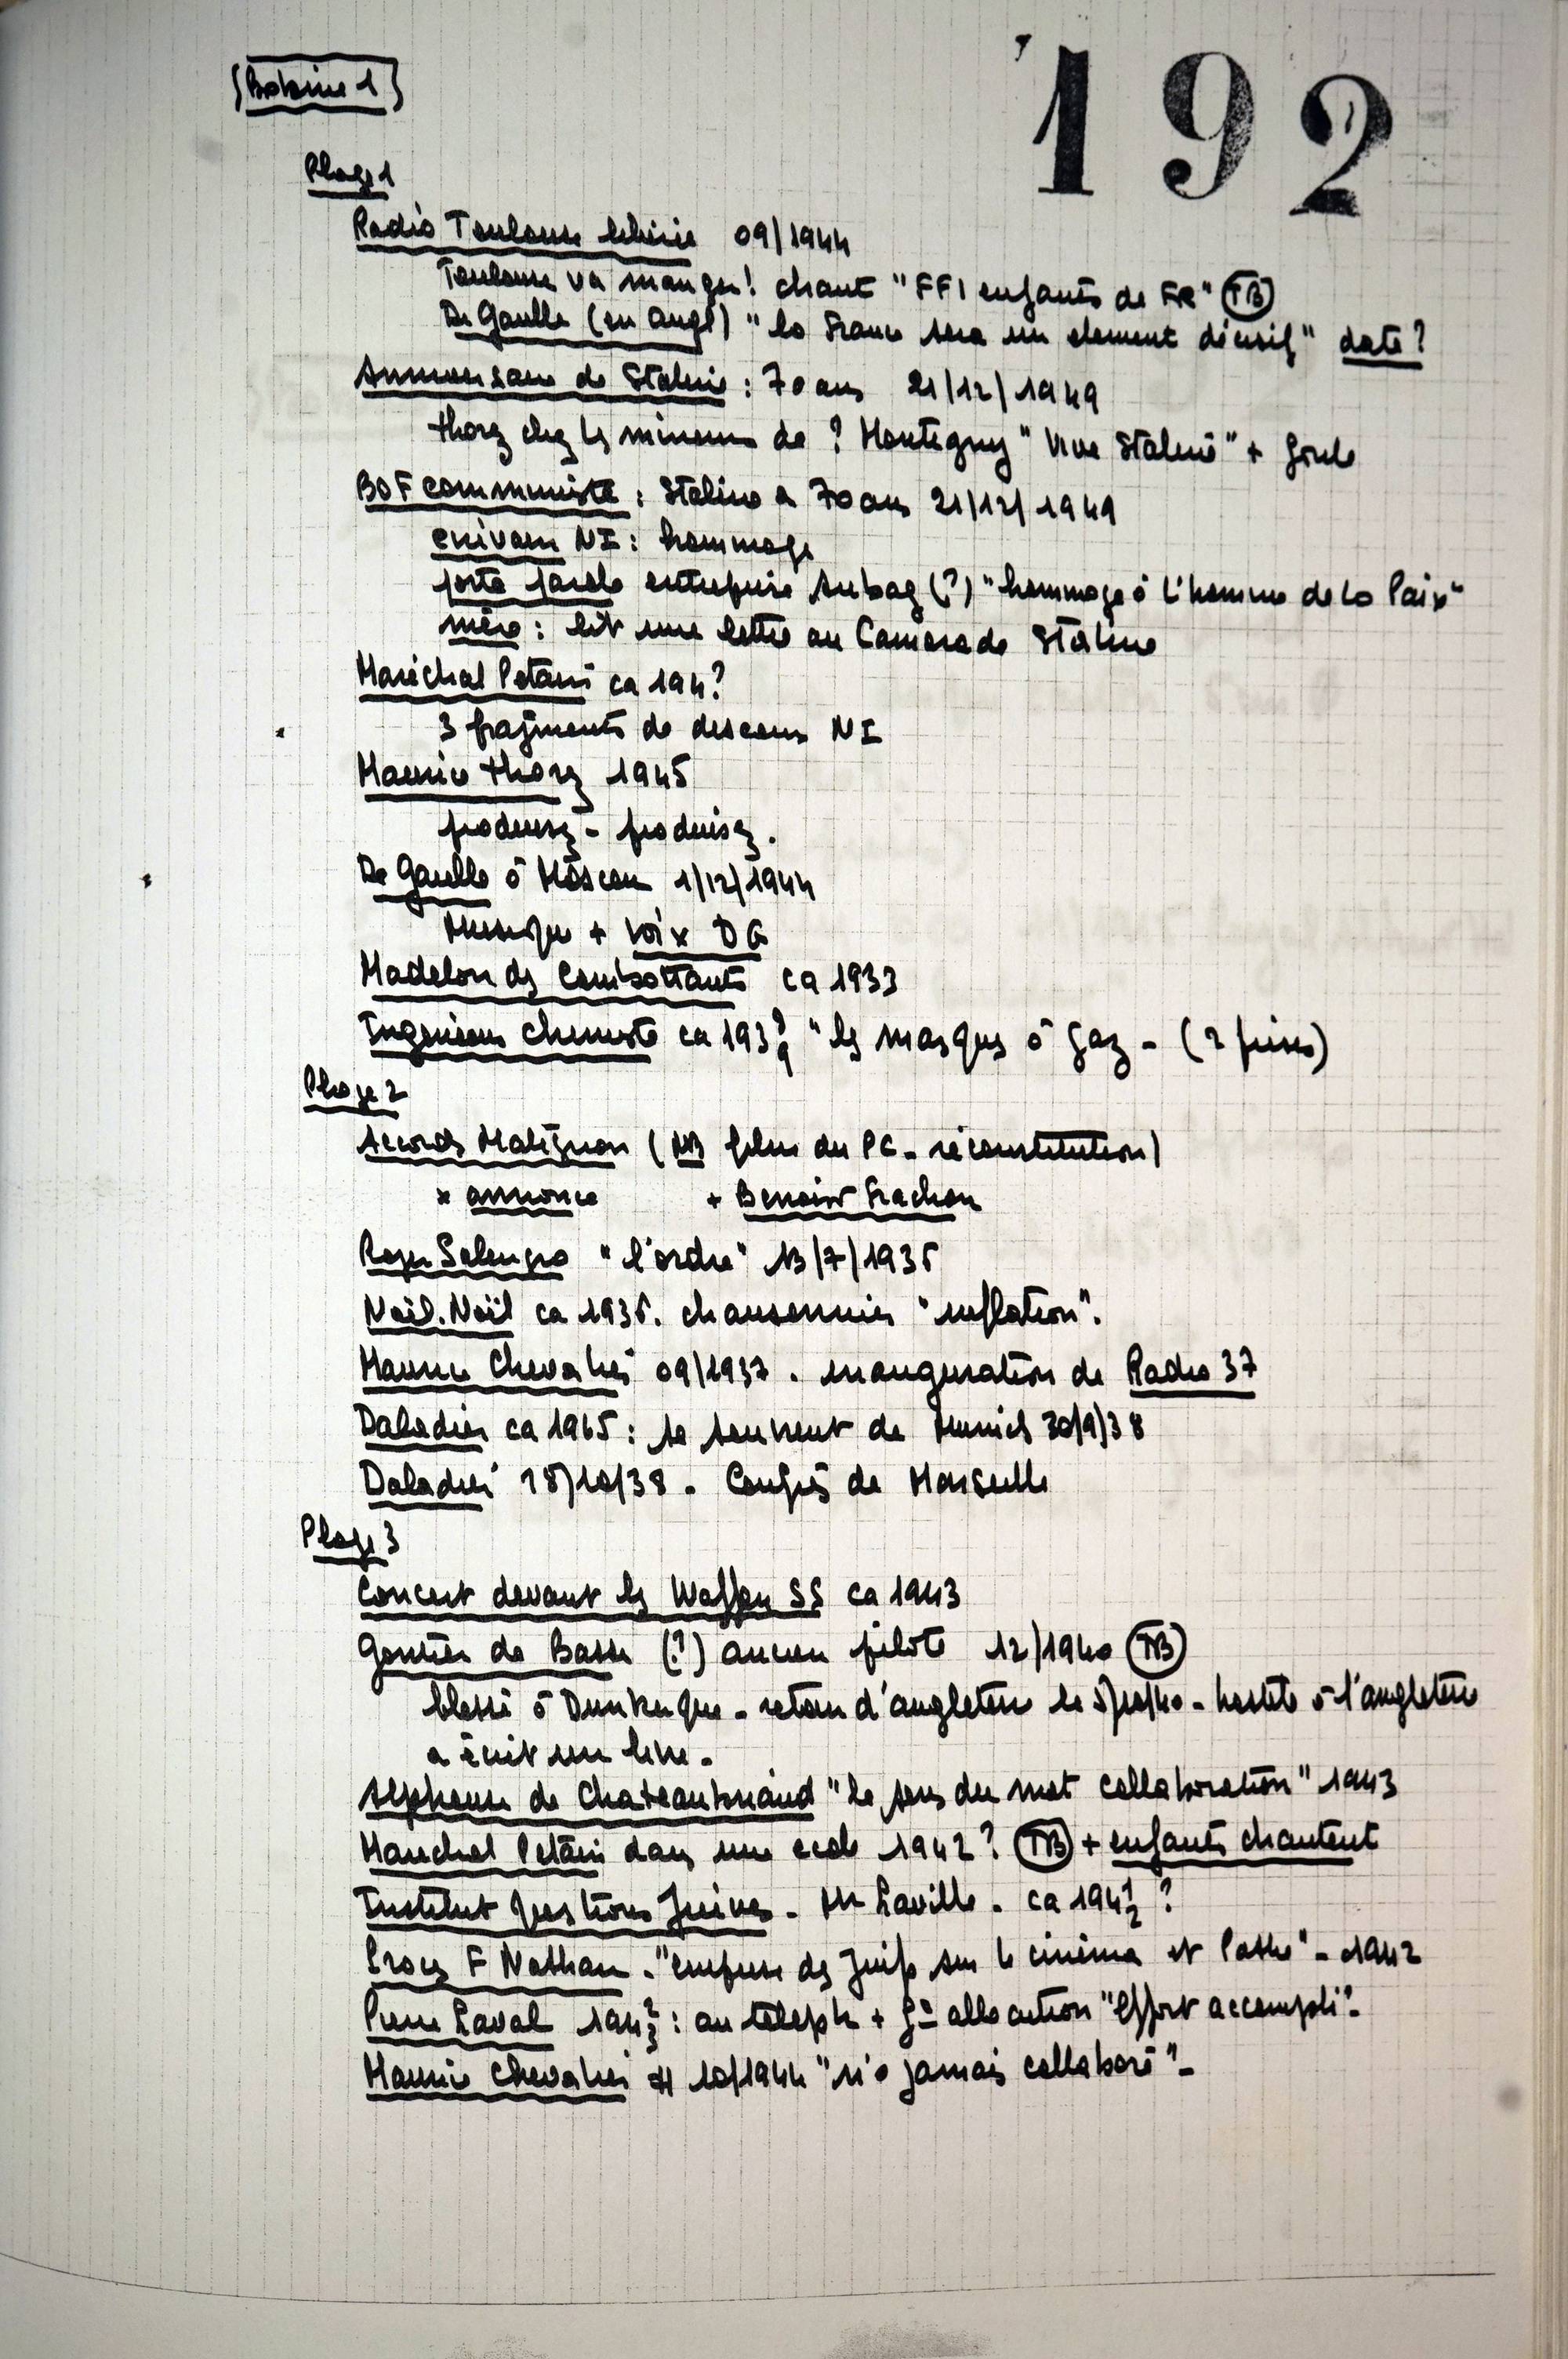 192
Bobine 1
Plage 1
Radio Toulouse libérée 09/1944
Toulouse va manger! chant "FFI enfants de FR" TB
De Gaulle (en angl) "la France sera un element décisif" date?
Anniversaire de Staline : 70 ans 21/12/1949
Thorez chez les mineurs de ? Montigny "Vive Staline" + foule
BOF communiste : Staline a 70 ans 21/12/1949
écrivain NI : hommage
porte parole entreprise (?) "hommage à l'homme de la Paix"
mère : lit une lettre au Camarade Staline
Maréchal Petain ca 194?
3 fragments de discours NI
Maurice Thorez 1945
produisez - produisez.
De Gaulle à Moscou 1/12/1944
Musique + voix DG
Madelon des Combattants ca 1933
Ingénieur chimiste ca 193? "les masques à gaz - (2 prises)
Plage 2
Accords Matignon (NB film du PC - reconstitution)
* annonce + Benoit Frachon
Roger Salengro "l'ordre" 13/7/1936
Noël.Noël ca 1936. chansonnier "inflation".
Maurice Chevalier 09/1937. inauguration de Radio 37
Daladier ca 1965 : se souvient de Munich 30/9/38
Daladier 28/10/38 - Congrès de Marseille
Plage 3
Concert devant les Waffen SS ca 1943
Gontier de Basse (?) ancien pilote 12/1940 TB
blessé à Dunkerque - retour d'angleterre le - hostile à l'angleterre
a écrit un livre -
Alphonse de Chateaubriand "le sens du mot collaboration" 1943
Marechal Pétain dans une ecole 1942? TB + enfants chantent
Institut Questions Juives - Mr Laville - ca 1941/2 ?
Procès F Nathan - "emprise des Juifs sur le cinéma et Pathé" - 1942
Pierre Laval 1942/3 : au téléph + gde allocution "effort accompli"-
Maurice Chevalier 10/1944 "n'a jamais collaboré"-